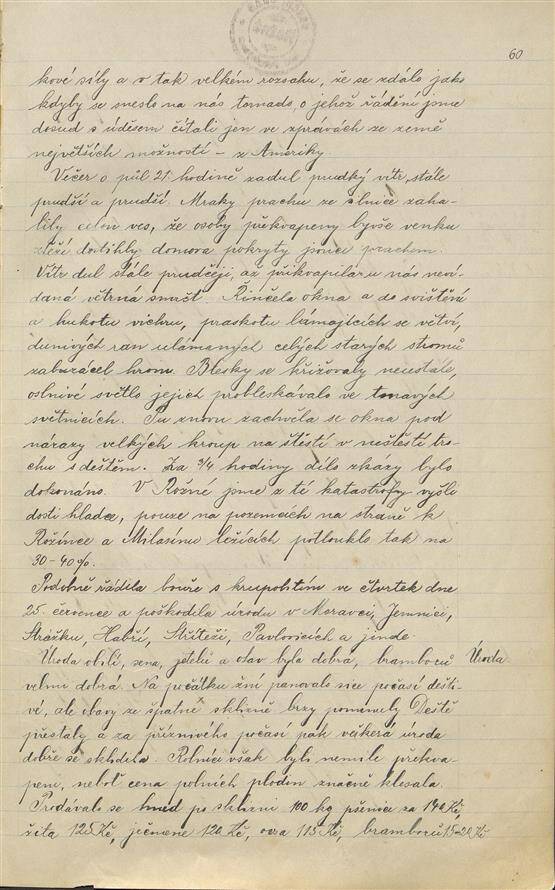 60
kové síly a v tak velkém rozsahu, že se zdálo jako
kdyby se sneslo na nás tornado, o jehož řádění jsme
dosud s úděsem čítali jen ve zprávách ze země
největších možností – z Ameriky.
Večer o půl 21. hodině zadul prudký vítr, stále
prudší a prudší. Mraky prachu ze silnice zaha-
lily celou ves, že osoby překvapeny byvše venku
stěží dostihly domova pokryty jsouce prachem.
Vítr dul stále prudčeji, až přikvapila u nás neví-
daná větrná smršť. Řinčela okna a do svištění
a hukotu vichru, praskotu lámajících se větví,
dunivých ran ulámaných celých starých stromů
zaburácel hrom. Blesky se křižovaly neustále,
oslnivé světlo jejich probleskávalo ve tmavých
světnicích. Tu znovu zachvěla se okna pod
nárazy velkých krup na štěstí v neštěstí tro-
chu s deštěm. Za 3/4 hodiny dílo zkázy bylo
dokonáno. V Rožné jsme z té katastrofy vyšli
dosti hladce, pouze na pozemcích na straně k
Rožínce a Milasínu ležících potlouklo tak na
30–40%.
Podobně řádila bouře s krupobitím ve čtvrtek dne
25. července a poškodila úrodu v Moravci, Jemnici,
Strážku, Habří, Stříteži, Pavlovicích a jinde.
Úroda obilí, sena, jetelů a otav byla dobrá, bramborů
Úroda
velmi dobrá. Na počátku žní panovalo sice počasí dešti-
vé, ale obavy ze špatné sklizně brzy pominuly. Deště
přestaly a za příznivého počasí pak veškerá úroda
dobře se sklidila. Rolníci však byli nemile překva-
peni, neboť cena polních plodin značně klesala.
Prodávalo se hned po sklizni 100 kg pšenice za 140 Kč,
žita 125 Kč, ječmene 120 Kč, ovsa 115 Kč, bramborů 15–20 Kč